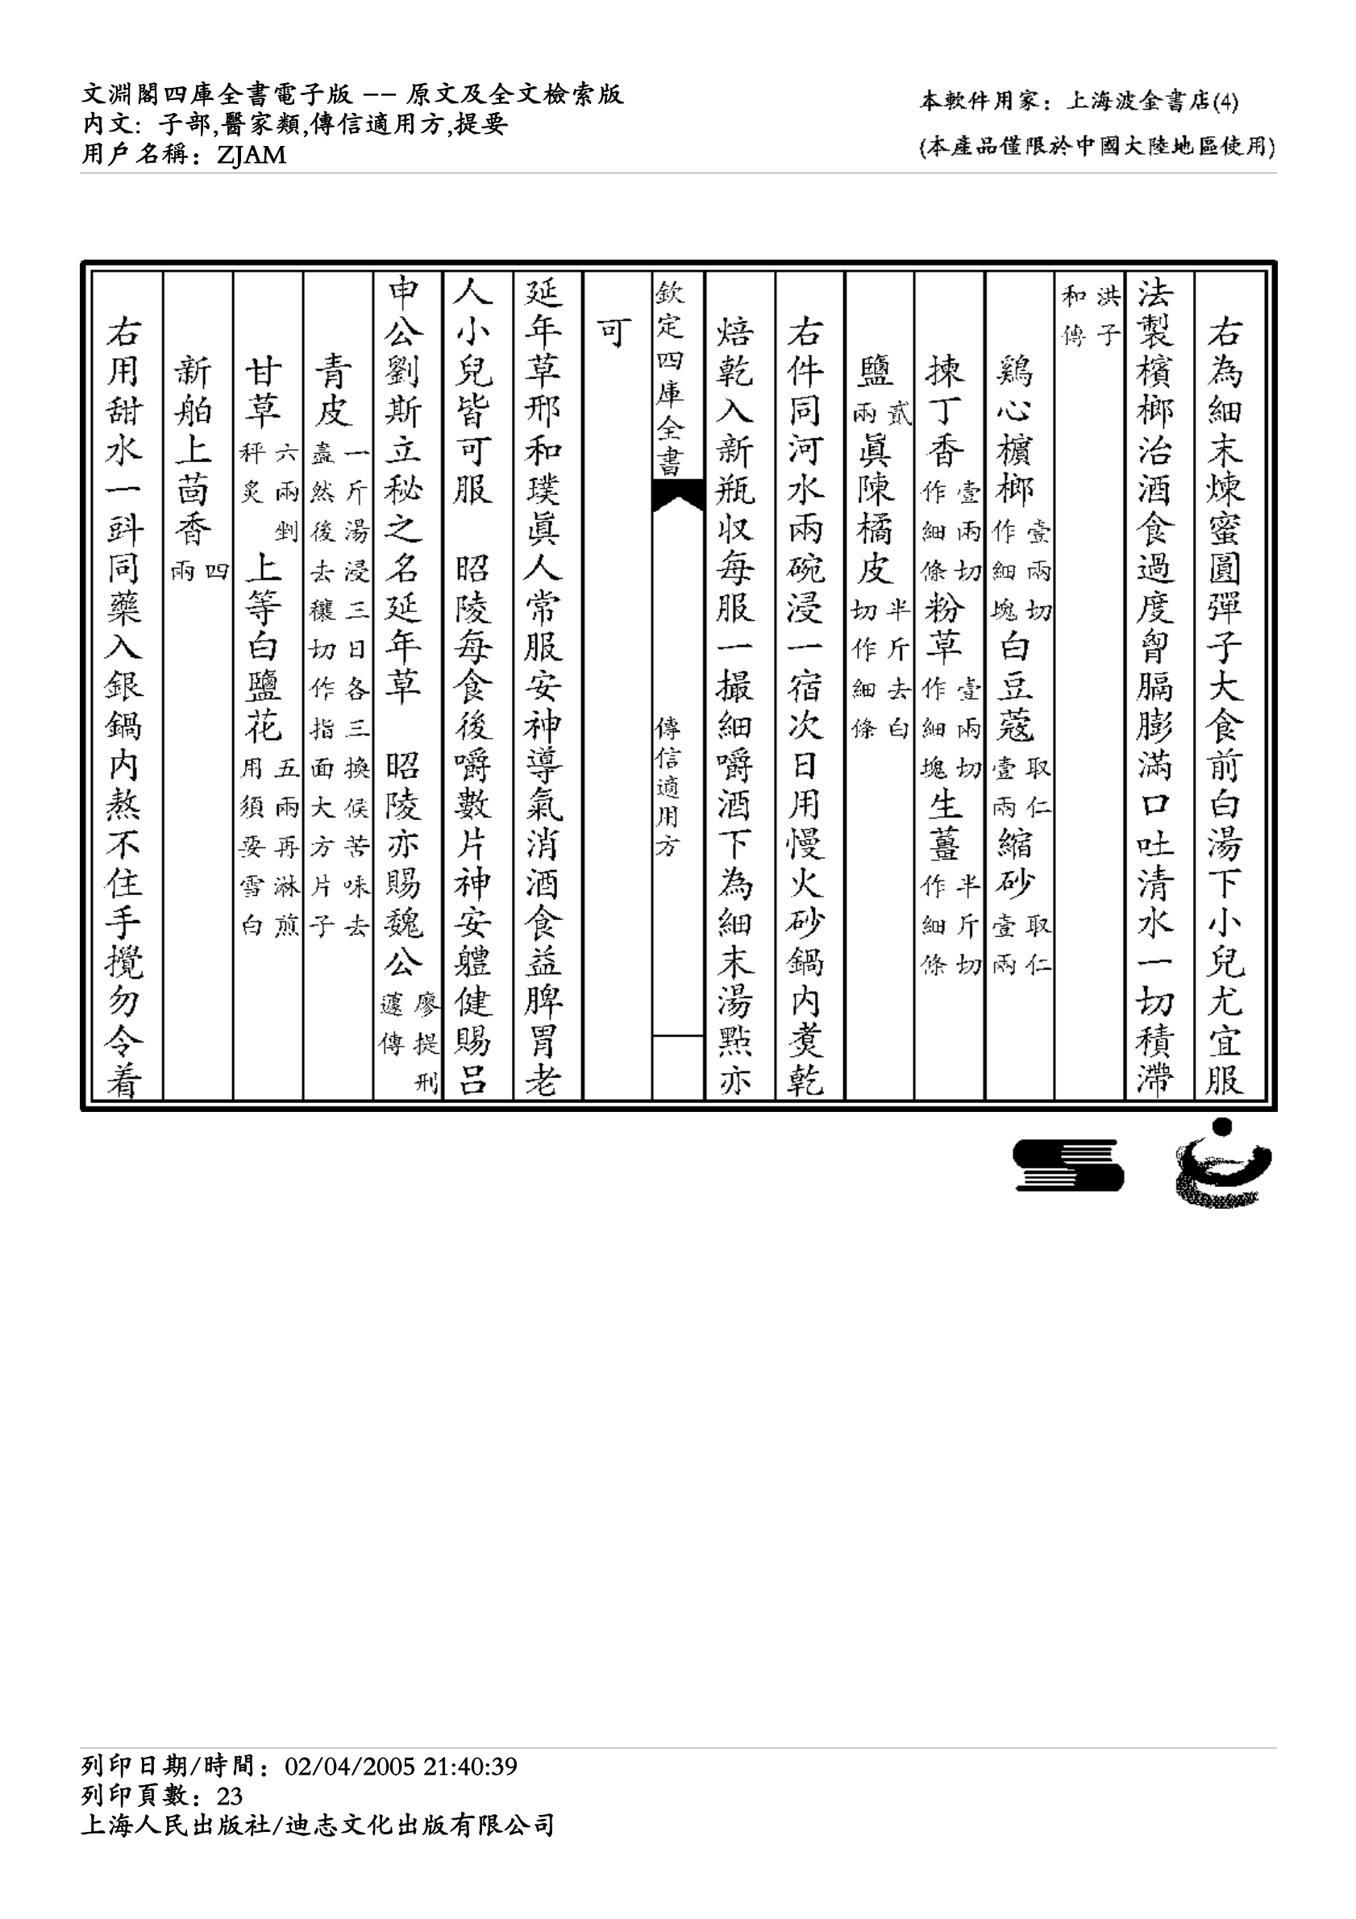 文淵閣四庫全書電子版 -- 原文及全文檢索版
內文: 子部,醫家類,傳信適用方,提要
用戶名稱：ZJAM
本軟件用家：上海波金書店(4)
(本產品僅限於中國大陸地區使用)
右為細末煉蜜圓彈子大食前白湯下小兒尤宜服
法製檳榔治酒食過度胷膈膨滿口吐清水一切積滯
洪子和傳
鷄心檳榔壹兩切作細塊白豆蔻取仁壹兩縮砂取仁壹兩
揀丁香壹兩切作細條粉草壹兩切作細塊生薑半斤切作細條
鹽貳兩眞陳橘皮半斤去白切作細條
右件同河水兩碗浸一宿次日用慢火砂鍋內煑乾
焙乾入新瓶収每服一撮細嚼酒下為細末湯點亦
欽定四庫全書
傳信適用方
可
延年草邢和璞眞人常服安神導氣消酒食益脾胃老
人小兒皆可服　昭陵每食後嚼數片神安軆健賜呂
申公劉斯立秘之名延年草　昭陵亦賜魏公廖提刑蘧傳
青皮一斤湯浸三日各三換候苦味去盡然後去穰切作指面大方片子
甘草六兩剉秤炙上等白鹽花五兩再淋煎用須要雪白
新舶上茴香四兩
右用甜水一㪷同藥入銀鍋內熬不住手攪勿令着
列印日期/時間：02/04/2005 21:40:39
列印頁數：23
上海人民出版社/迪志文化出版有限公司